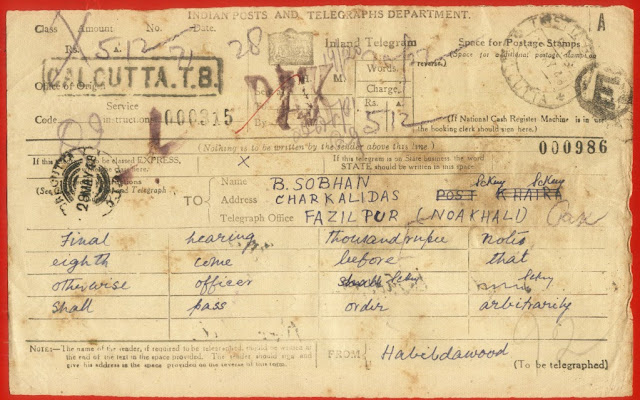 INDIAN POSTS AND TELEGRAPHS DEPARTMENT.
A
Class Amount No. Date.
Rs. A.
5/2 28
Inland Telegram
Space for Postage Stamps
CALCUTTA.T.B.
Office of Origin
Words.
Charge.
Rs. A.
5/2
E
Service
Code Instructions 000315
By
(If National Cash Register Machine is in use
the booking clerk should sign here.)
(Nothing is to be written by the sender above this line)
000986
EXPRESS,
X
If this telegram is on State business the word
STATE should be written in this space.
28 MAY
Name B. SOBHAN
TO Address CHARKALIDAS POST KHAIRA
Telegraph Office FAZILPUR (NOAKHALI)
Final hearing thousand rupee notes
eighth come before that
otherwise officer
shall pass order arbitrarily
NOTES—The name of the sender, if required to be telegraphed, should be written at
the end of the text in the space provided. The sender should sign and
give his address in the space provided on the reverse of this form.
FROM Habibdawood
(To be telegraphed)